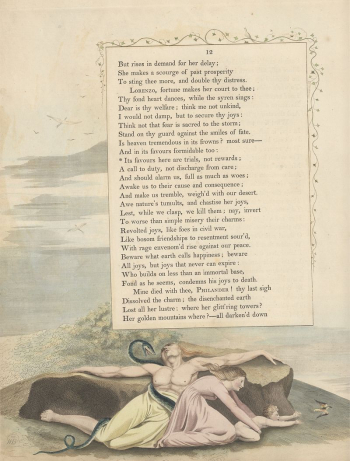 12
But rises in demand for her delay;
She makes a scourge of past prosperity
To sting thee more, and double thy distress.
LORENZO, fortune makes her court to thee;
Thy fond heart dances, while the syren sings:
Dear is thy welfare; think me not unkind,
I would not damp, but to secure thy joys:
Think not that fear is sacred to the storm;
Stand on thy guard against the smiles of fate.
Is heaven tremendous in its frowns? most sure—
And in its favours formidable too:
* Its favours here are trials, not rewards;
A call to duty, not discharge from care;
And should alarm us, full as much as woes;
Awake us to their cause and consequence;
And make us tremble, weigh'd with our desert.
Awe nature's tumults, and chastise her joys,
Lest, while we clasp, we kill them: nay, invert
To worse than simple misery their charms:
Revolted joys, like foes in civil war,
Like bosom friendships to resentment sour'd,
With rage envenom'd rise against our peace.
Beware what earth calls happiness; beware
All joys, but joys that never can expire:
Who builds on less than an immortal base,
Fond as he seems, condemns his joys to death.
Mine died with thee, PHILANDER! thy last sigh
Dissolved the charm; the disenchanted earth
Lost all her lustre: where her glitt'ring towers?
Her golden mountains where?—all darken'd down